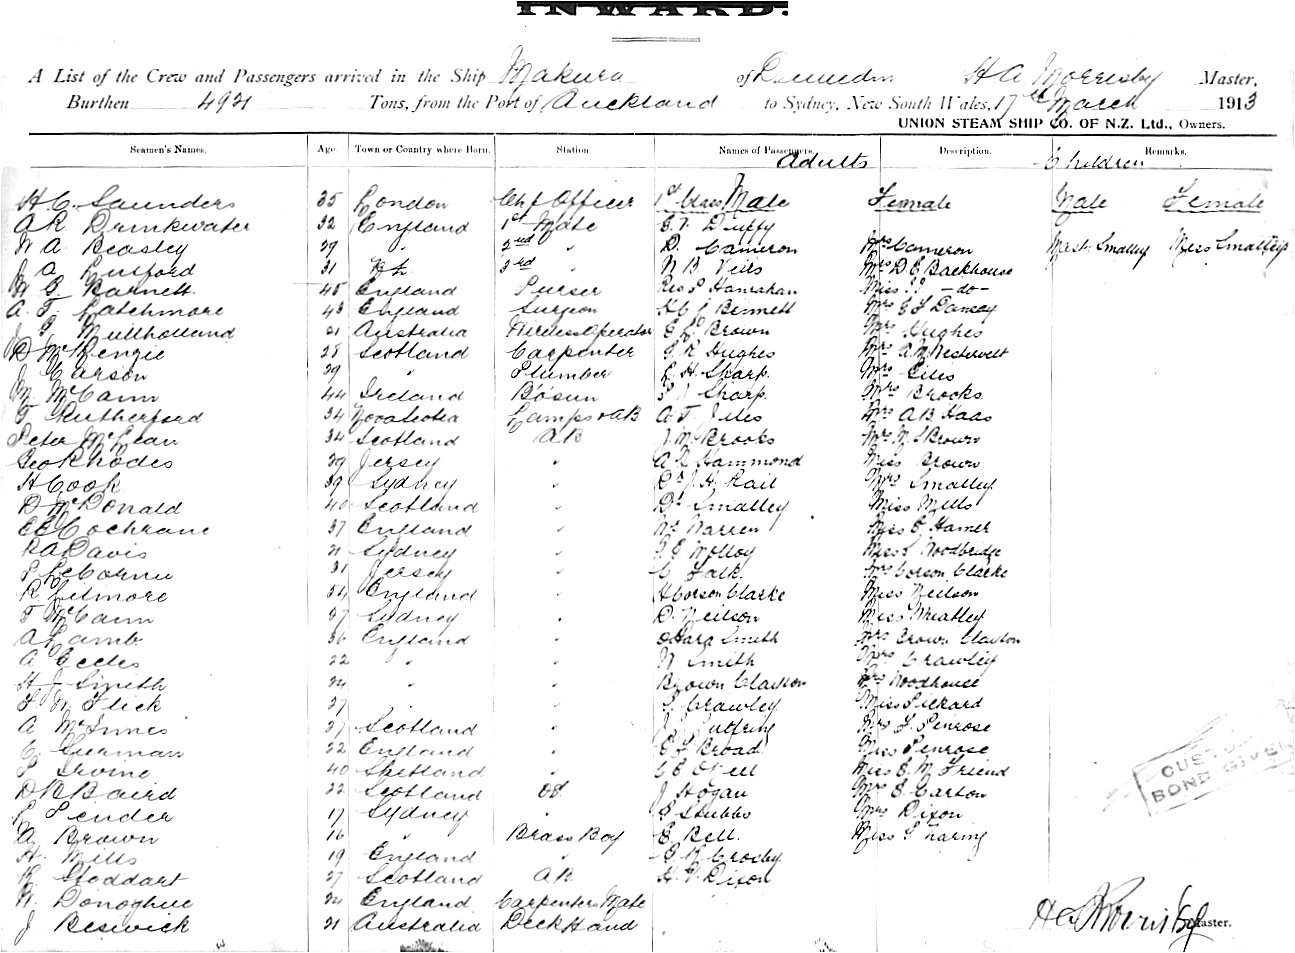 INWARD.
A List of the Crew and Passengers arrived in the Ship Makura of Dunedin H A Morrisby Master,
Burthen 4921 Tons, from the Port of Auckland to Sydney, New South Wales, 17th March 1913
UNION STEAM SHIP CO. OF N.Z. Ltd., Owners.
Seamen's Names. Age. Town or Country where Born. Station. Names of Passengers. Adults Description. Children Remarks.
H C Saunders 35 London Chf Officer 1st Class Male Female Male Female
A R Drinkwater 32 England 1st Mate Duffy
W A Beasley 29 " 2nd " D. Cameron Mrs Cameron Mast. Smalley Miss Smalley
J A 31 3rd " N B Mrs D E Backhouse
Barnett 45 England Purser Hanrahan Miss -do-
A. T. Latchmore 43 England Surgeon Bennett Mrs
J Mullholland 21 Australia Wireless Operator Brown Mrs Hughes
D McKenzie 25 Scotland Carpenter Hughes Mrs
J Carson 29 " Plumber L H Sharp. Mrs Giles
M McCann 44 Ireland Bosun Sharp. Mrs Brooks
T Rutherford 34 Nova Scotia Lamps & AB A T Mrs A B Haas
Peter McLean 34 Scotland AB J M Brooks Mrs Brown
Geo Rhodes 29 Jersey " Hammond Miss Brown
H Cook 39 Sydney " Dr J H Rail Mrs Smalley
D McDonald 40 Scotland " Dr Smalley Miss Mills
Cochrane 37 England " Warren Miss Hamer
R A Davis 21 Sydney " Molloy Miss Woodbridge
31 Jersey " C Falk. Mrs Corson Clarke
R Gilmore 54 England " H Corson Clarke Miss Neilson
T McCann 27 Sydney " D. Neilson Miss Wheatley
A Lamb 36 England " O'Hara Smith Mrs Brown Clayton
A Eccles 22 " " N Smith Mrs Crawley
H J Smith 24 " " Brown Clayton Mrs Woodhouse
Flick 27 " " Crawley Miss Pickard
A McInnes 27 Scotland " Mrs Penrose
C German 22 England " Broad Miss Penrose
Irvine 40 Shetland " Miss E. M. Friend
D R Baird 22 Scotland OS J Hogan Mrs E Carton
L Pender 17 Sydney " Stubbs Mrs Dixon
A Brown 16 " Brass Boy E Bell
H Mills 19 England " Crosby
Stoddart 27 Scotland AB Dixon
Donoghue 24 England Carpenters Mate
J Beswick 21 Australia Deck Hand
CUSTOMS
BOND GIVEN
H A Morrisby Master.